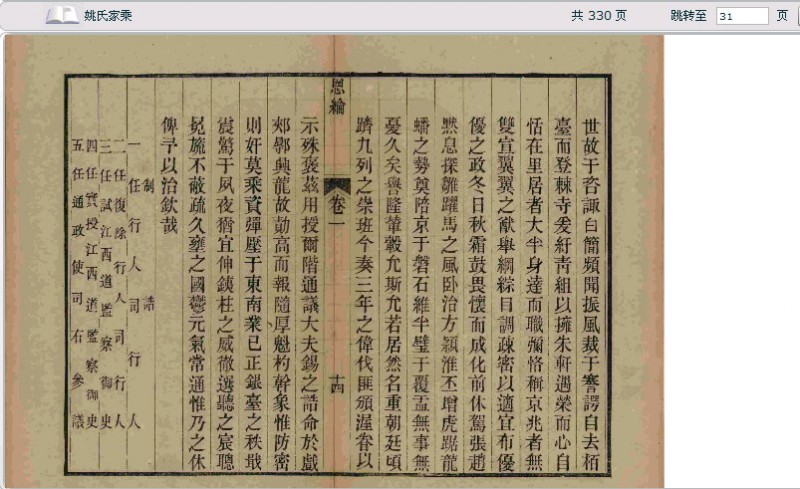 姚氏家乘
共 330 页
跳转至 31 页
世故于咨諏白簡頻聞振風裁于謇諤自去栢
臺而登棘寺爰紆靑組以擁朱軒遇榮而心自
恬在里居者大半身達而職彌恪稱京兆者無
雙宣翼翼之猷舉綱綜目調疎密以適宜布優
優之政冬日秋霜鼓畏懷而成化前休駕張趙
黙息探雛躍馬之風卧治方潁淮丕增虎踞龍
蟠之勢奠陪京于磐石維半璧于覆盂無事無
憂久矣譽隆輦轂允斯允若居然名重朝廷頃
躋九列之崇班今奏三年之偉伐匪頒渥眷以
恩綸
卷一
十四
示殊褒茲用授爾階通議大夫錫之誥命於戲
郟鄏興龍故勛高而報隨厚魁杓幹象惟防密
則奸莫乘資彈壓于東南業已正銀臺之秩戢
震驚于夙夜猶宜伸銕柱之威徹邇聽之宸聰
冕旒不蔽疏久壅之國鬱元氣常通惟乃之休
俾予以治欽哉
制誥
一任行人司行人
二任復除行人司行人
三任試江西道監察御史
四任實授江西道監察御史
五任通政使司右參議